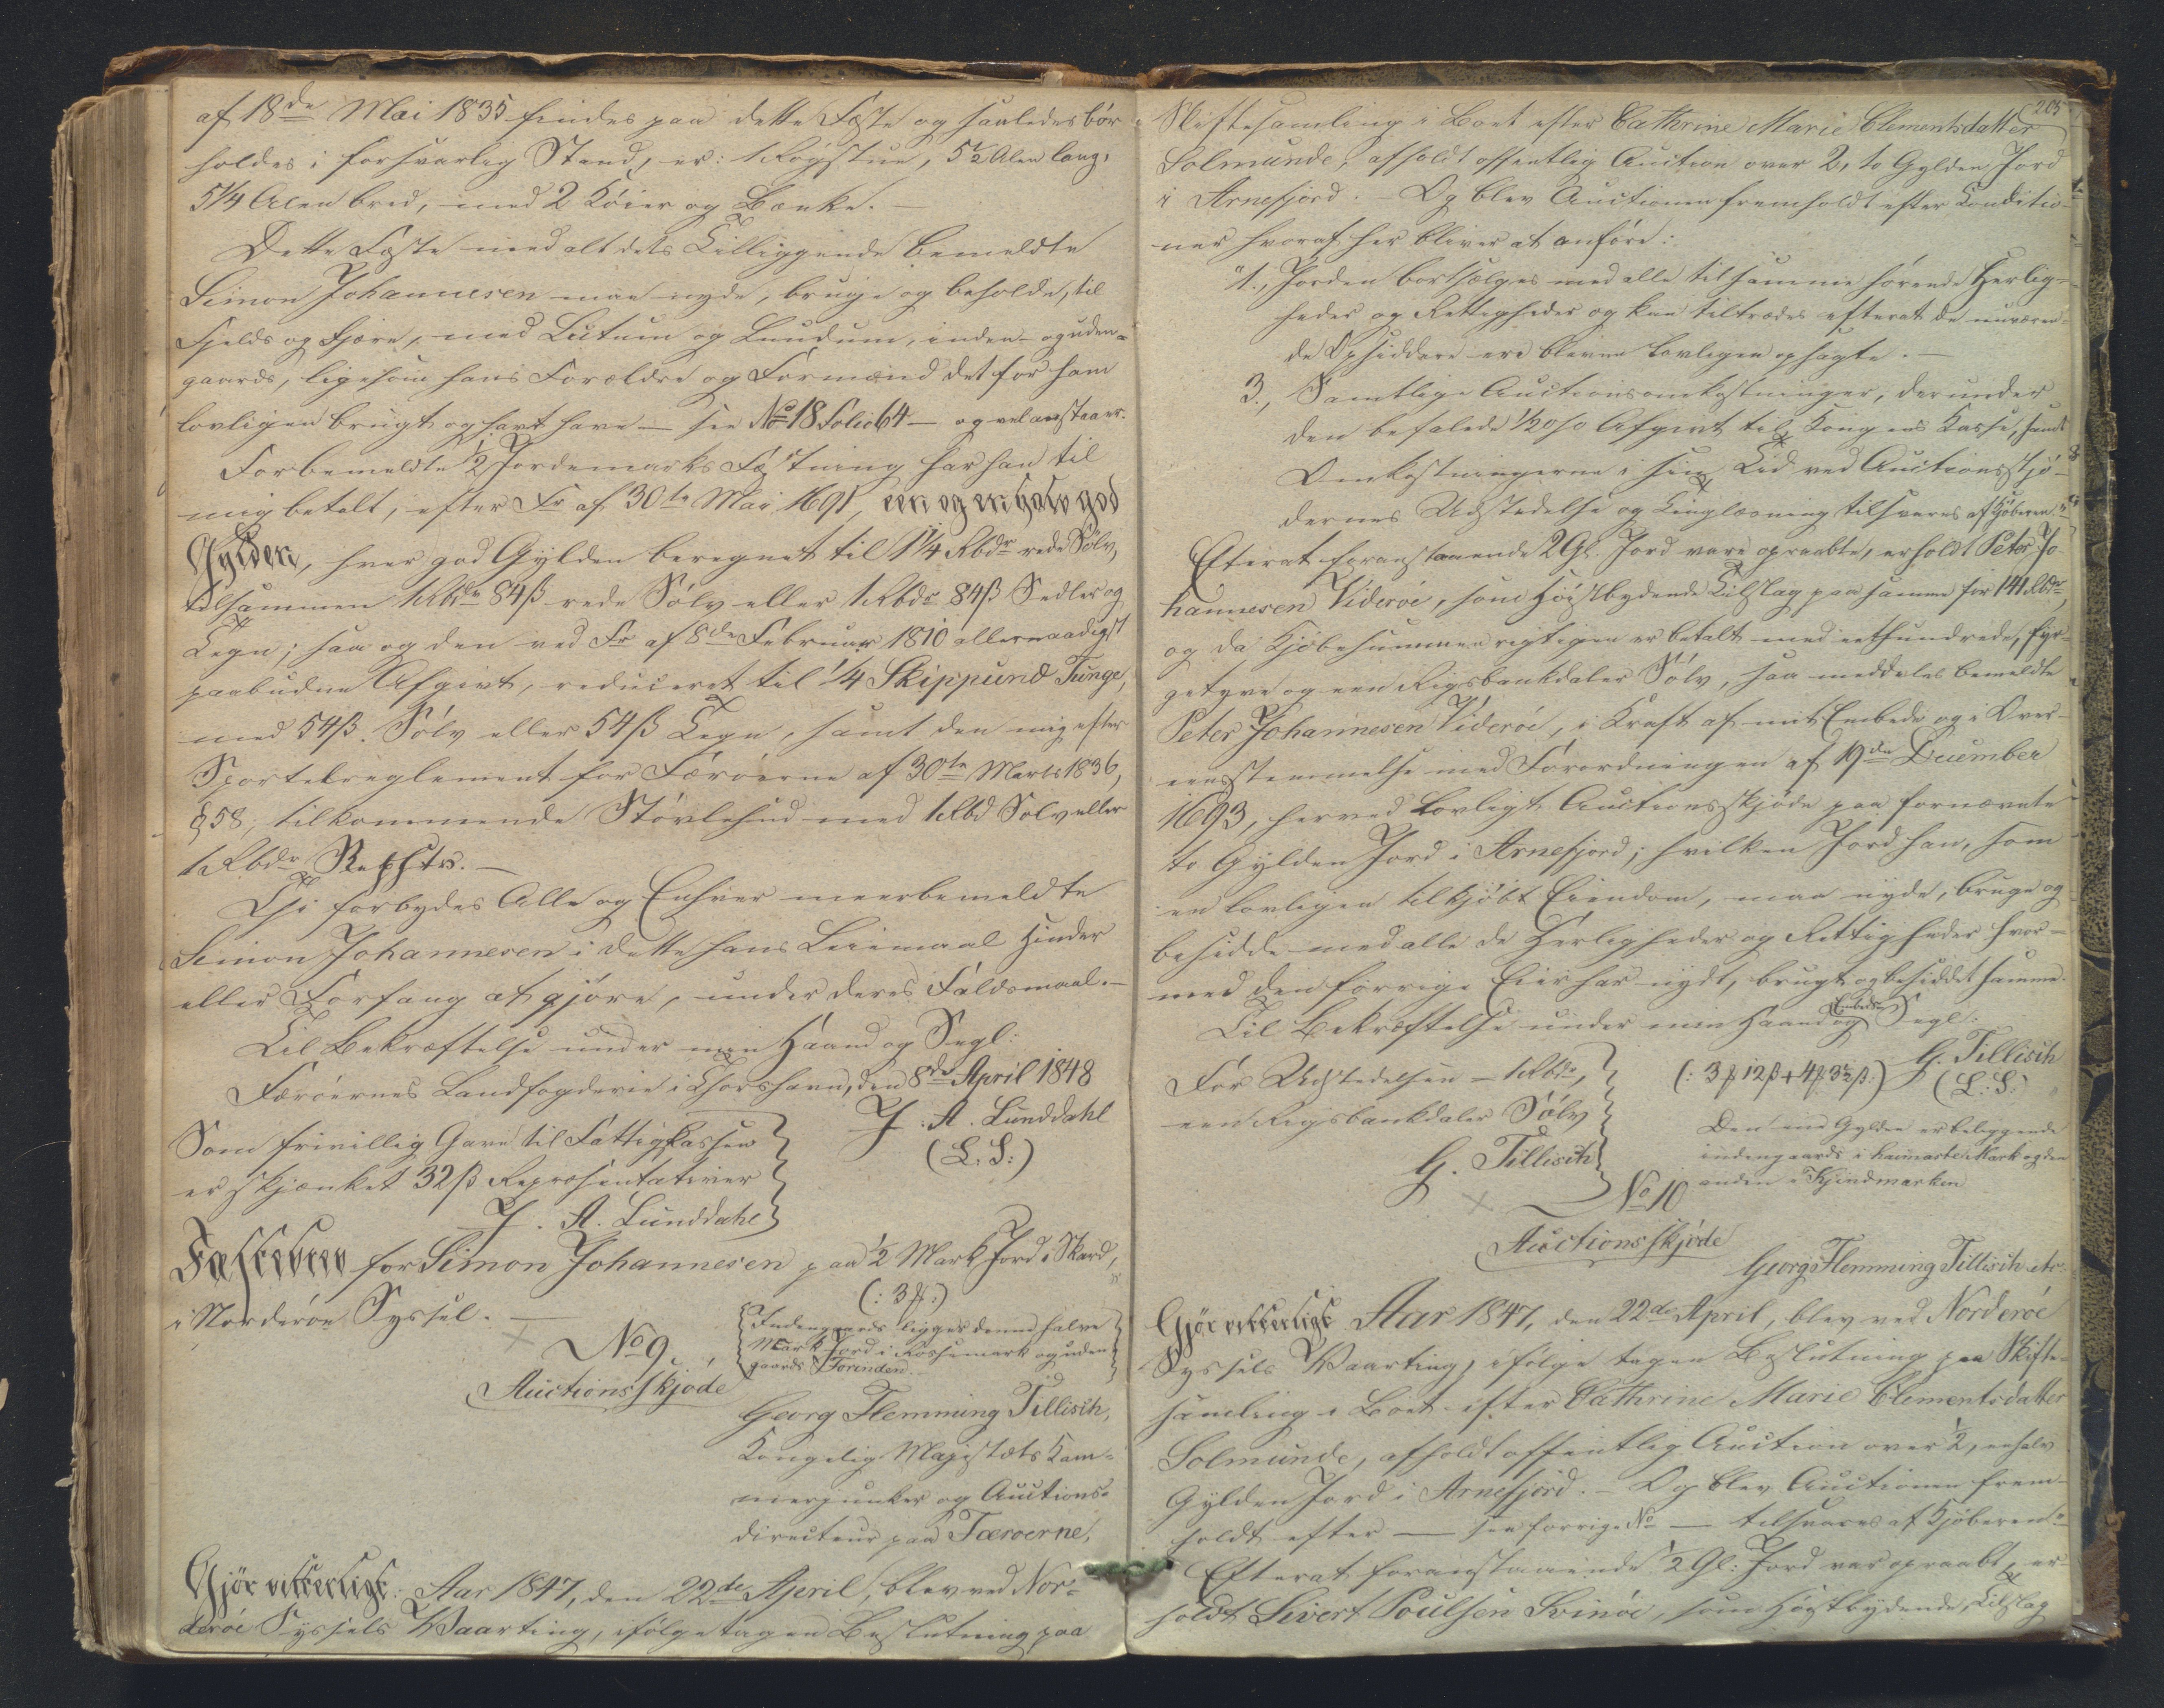 af 18de Mai 1835 findes paa dette Fæste og saaledes bør
holdes i forsvarlig Stand, er: 1 Røgstue, 5½ Alen lang,
5 1/4 Alen bred, med 2 Köier og Bænke. —
Dette Fæste med alt dets Tilliggende bemeldte
Simon Johannesen maa nyde, bruge og beholde, til
Fjelds og Fjære, med Lutum og Lundum, inden- og uden-
gaards, ligesom hans Forældre og Formænd det før ham
lovligen brugt og havt have — see No 18 Folio 64 — og vel anstaaer.
For bemeldte ½ Jordemarks Fæstning har han til
mig betalt, efter Fr af 30te Mai 1691, een og en halv god
Gylden, hver god Gylden beregnet til 1 1/4 Rbdr rede Sölv,
tilsammen 1 Rbdr 84 ß rede Sölv eller 1 Rbdr 84 ß Sedler og
Tegn; saa og den ved Fr af 8de Februar 1810 allernaadigst
paabudne Afgivt, reduceret til 1/4 Skippund Tunge,
med 54 ß. Sölv eller 54 ß Tegn, samt den mig efter
Sportelreglement for Færøerne af 30te Marts 1836,
§ 58, tilkommende Støvlehud med 1 Rbd Sølv eller
1 Rbdr Repstvr. —
Thi forbydes Alle og Enhver meerbemeldte
Simon Johannesen i dette hans Leiemaal Hinder
eller Forfang at gjöre, under deres Faldsmaal. —
Til Bekræftelse under min Haand og Segl:
Færöernes Landfogderie i Thorshavn, den 8de April 1848
J. A. Lunddahl
(L. S:)
Som frivillig Gave til Fattigkassen
er skjænket 32 ß Repræsentativer
J. A. Lunddahl
Fæstebrev for Simon Johannesen paa ½ Mark Jord i Skard,
i Norderöe Syssel. —
Indengaards ligger denne halve
Mark Jord i Kossemark og uden
gaards
No 9.
Auctionsskjøde
Georg Flemming Tillisch,
Kongelig Majestæts Kam-
merjunker og Auctions-
directeur paa Færoerne,
Gjör vitterligt: Aar 1847, den 22de April, blev ved Nor-
deröe Syssels Vaarting, ifölge tagen Beslutning paa
205
Skiftesamling i Boet efter Cathrine Marie Clementsdatter
Solmunde, afholdt offentlig Auction over 2, to Gylden Jord
i Arnefjord. — Og blev Auctionen fremholdt efter Conditio-
ner hvoraf her bliver at anföre:
"1., Jorden bortsælges med alle til samme hörende Herlig-
heder og Rettigheder og kan tiltrædes efterat de nuværen-
de Opsiddere ere blevne lovligen opsagte. —
3., Samtlige Auctionsomkostninger, derunder
den befalede ½ o/o Afgivt til Kongens Kasse, samt
Omkostningerne i sin Tid ved Auctionsskjö-
dernes Udstedelse og Tinglæsning tilsvares af Kjöberen"
Efterat foranstaaende 2 Gl. Jord vare opraabte, erholdt Peter Jo-
hannesen Videröe, som Höistbydende Tilslag paa samme for 141 Rbdr,
og da Kjöbesummen rigtigen er betalt med eethundrede, fyr-
getyve og een Rigsbankdaler Sölv, saa meddeles bemeldte
Peter Johannesen Videröe, i Kraft af mit Embede og i Over-
eensstemmelse med Forordningen af 19de December
1693, herved Lovligt Auctionsskjöde paa fornævnte
to Gylden Jord i Arnefjord; hvilken Jord han, som
en lovligen tilkjöbt Eiendom, maa nyde, bruge og
besidde med alle de Herligheder og Rettigheder hvor-
med den forrige Eier har nydt, brugt og besiddet samme.
Til Bekræftelse under min Haand og Embeds Segl:
G. Tillisch
(L: S:)
For Udstedelsen — 1 Rbdr,
een Rigsbankdaler Sölv
G. Tillisch
Den ene Gylden er beliggende
indengaards i heimaste Mark og den
anden i Kjindmarken
No 10
Auctionsskjøde
Georg Flemming Tillisch etc:
Gjör vitterligt Aar 1847, den 22de April, blev ved Norderöe
Syssels Vaarting, ifölge tagen Beslutning paa Skifte-
samling i Boet efter Cathrine Marie Clementsdatter
Solmunde, afholdt offentlig Auction over ½, en halv
Gylden Jord i Arnefjord. — Og blev Auctionen frem-
holdt efter — see forrige No — tilsvares af Kjöberen"
Efterat foranstaaende ½ Gl: Jord var opraabt, er-
holdt Sivert Poulsen Svinöe, som Høistbydende, Tilslag